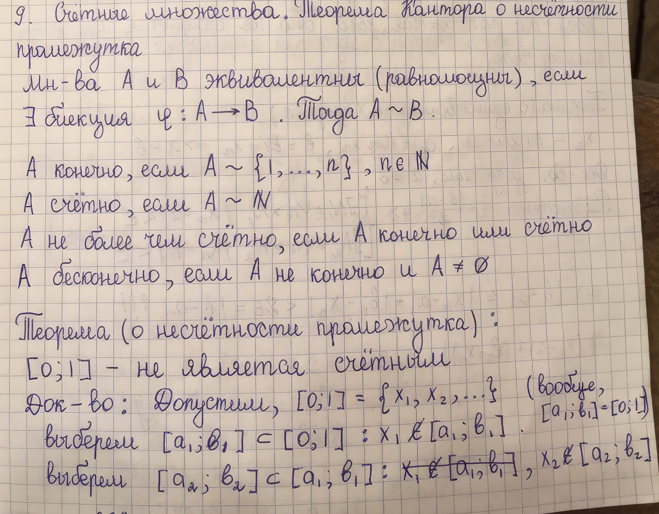 9. Счётные множества. Теорема Кантора о несчётности
промежутка
Мн-ва A и B эквивалентны (равномощны), если
∃ биекция φ: A → B. Тогда A ~ B.
A конечно, если A ~ {1,...,n}, n ∈ ℕ
A счётно, если A ~ ℕ
A не более чем счётно, если A конечно или счётно
A бесконечно, если A не конечно и A ≠ ∅
Теорема (о несчётности промежутка):
[0;1] - не является счётным
Док-во: Допустим, [0;1] = {x₁, x₂, ...} (вообще,
[a₁;b₁]=[0;1])
выберем [a₁;b₁] ⊂ [0;1] : x₁ ∉ [a₁;b₁].
выберем [a₂;b₂] ⊂ [a₁;b₁] : x₁ ∉ [a₁;b₁], x₂ ∉ [a₂;b₂]